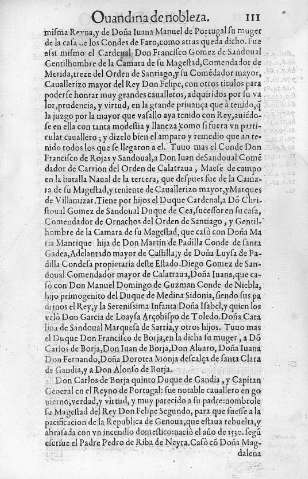 Ouandina de nobleza. III
misma Reyna, y de Doña Iuana Manuel de Portugal su muger
de la casa de los Condes de Faro, como atras queda dicho. Fue
assi mismo el Cardenal Don Francisco Gomez de Sandoual
Gentilhombre de la Camara de su Magestad, Comendador de
Merida, treze del Orden de Santiago, y su Comēdador mayor,
Cauallerizo mayor del Rey Don Felipe, con otros titulos para
poderse honrar muy grandes caualleros, adquiridos por su va
lor, prudencia, y virtud, en la grande priuança que à tenido, q̃
la juzgo por la mayor que vasallo aya tenido con Rey, auiédo-
se en ella con tanta modestia y llaneza como si fuera vn parti-
cular cauallero; y dizelo bien el amparo y remedio que an te-
nido todos los que se llegaron a el. Tuuo mas el Conde Don
Francisco de Rojas y Sandoual, a Don Iuan de Sandoual Comē
dador de Carrion del Orden de Calatraua, Maese de campo
en la batalla Naual de la tercera, que despues fue de la Cama-
ra de su Magestad, y teniente de Cauallerizo mayor, y Marques
de Villamizar. Tiene por hijos el Duque Cardenal, a Dō Chri-
stoual Gomez de Sandoual Duque de Cea, sucessor en su casa,
Comendador de Ornachos del Orden de Santiago, y Gentil-
hombre de la Camara de su Magestad, que casò con Doña Ma
ria Manrique hija de Don Martin de Padilla Conde de santa
Gadea, Adelantado mayor de Castilla, y de Doña Luysa de Pa-
dilla Condesa proprietaria deste Estado. Diego Gomez de San-
doual Comendador mayor de Calatraua, Doña Iuana, que ca-
sò con Don Manuel Domingo de Guzman Conde de Niebla,
hijo primogenito del Duque de Medina Sidonia, sendo sus pa
drinos el Rey, y la Serenissima Infanta Doña Isabel, y quien los
velò Don Garcia de Loaysa Arçobispo de Toledo. Doña Cata
lina de Sandoual Marquesa de Sarria, y otros hijos. Tuuo mas
el Duque Don Francisco de Borja, en la dicha su muger, a Dō
Carlos de Borja, Don Iuan de Borja, Don Aluaro, Doña Iuana
Don Fernando, Doña Dorotea Monja descalça de santa Clara
de Gandia, y a Don Alonso de Borja.
Don Carlos de Borja quinto Duque de Gandia, y Capitan
General en el Reyno de Portugal: fue notable cauallero en go
uierno, verdad, y virtud, y muy parecido a su padre: nombrole
su Magestad del Rey Don Felipe Segundo, para que fuesse a la
pacificacion de la Republica de Genoua, que estaua rebuelta, y
abrasada con vn incendio domestico: naciò el año de 1530. segū
escriue el Padre Pedro de Riba de Neyra. Casò cō Doña Mag-
dalena